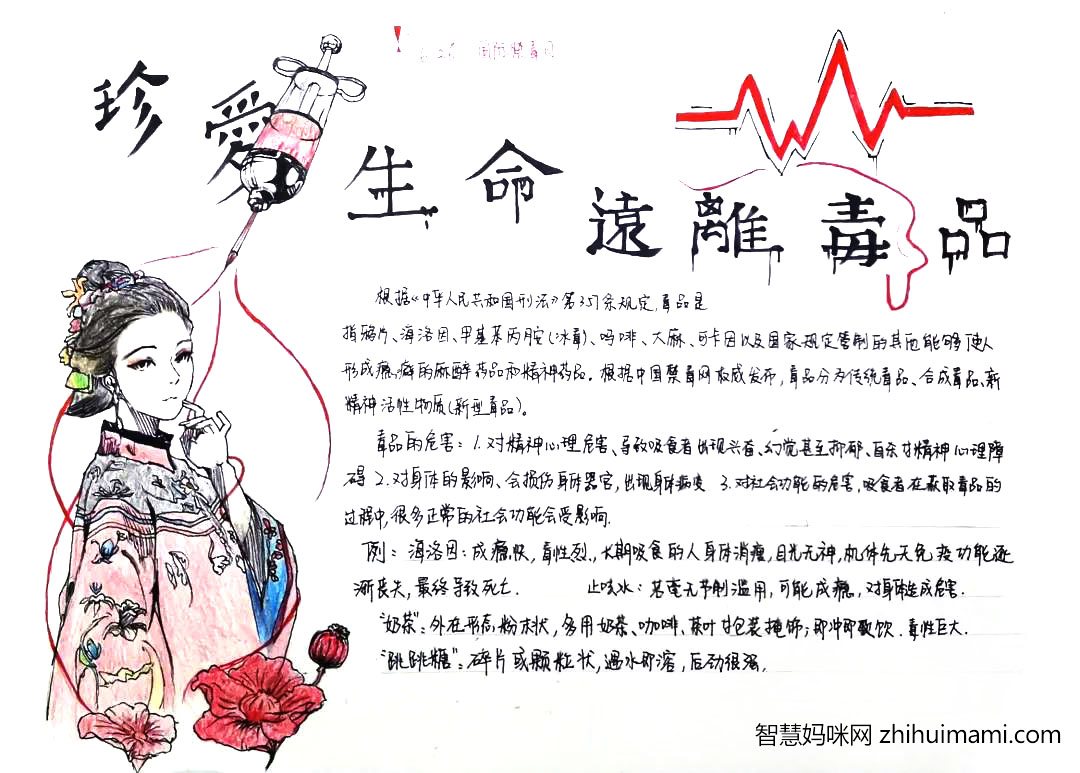 国际禁毒日
珍愛生命遠離毒品
根据《中华人民共和国刑法》第357条规定,毒品是
指鸦片、海洛因、甲基苯丙胺(冰毒)、吗啡、大麻、可卡因以及国家规定管制的其他能够使人
形成瘾癖的麻醉药品和精神药品。根据中国禁毒网权威发布,毒品分为传统毒品、合成毒品、新
精神活性物质(新型毒品)。
毒品的危害:1.对精神心理危害、导致吸食者出现兴奋、幻觉甚至抑郁、自杀才精神心理障
碍 2.对身体的影响、会损伤身体器官,出现身体病变 3.对社会功能的危害,吸食者在获取毒品的
过程中,很多正常的社会功能会受影响.
例:海洛因:成瘾快,毒性烈.,长期吸食的人身体消瘦,目光无神,机体先天免疫功能逐
渐丧失,最终导致死亡.
止咳水:若毫无节制滥用,可能成瘾,对身体造成危害.
"奶茶":外在形态粉末状,多用奶茶、咖啡、茶叶才包装掩饰;即冲即饮.毒性巨大.
"跳跳糖":碎片或颗粒状,遇水即溶,后劲很强.
智慧妈咪网 zhihuimami.com